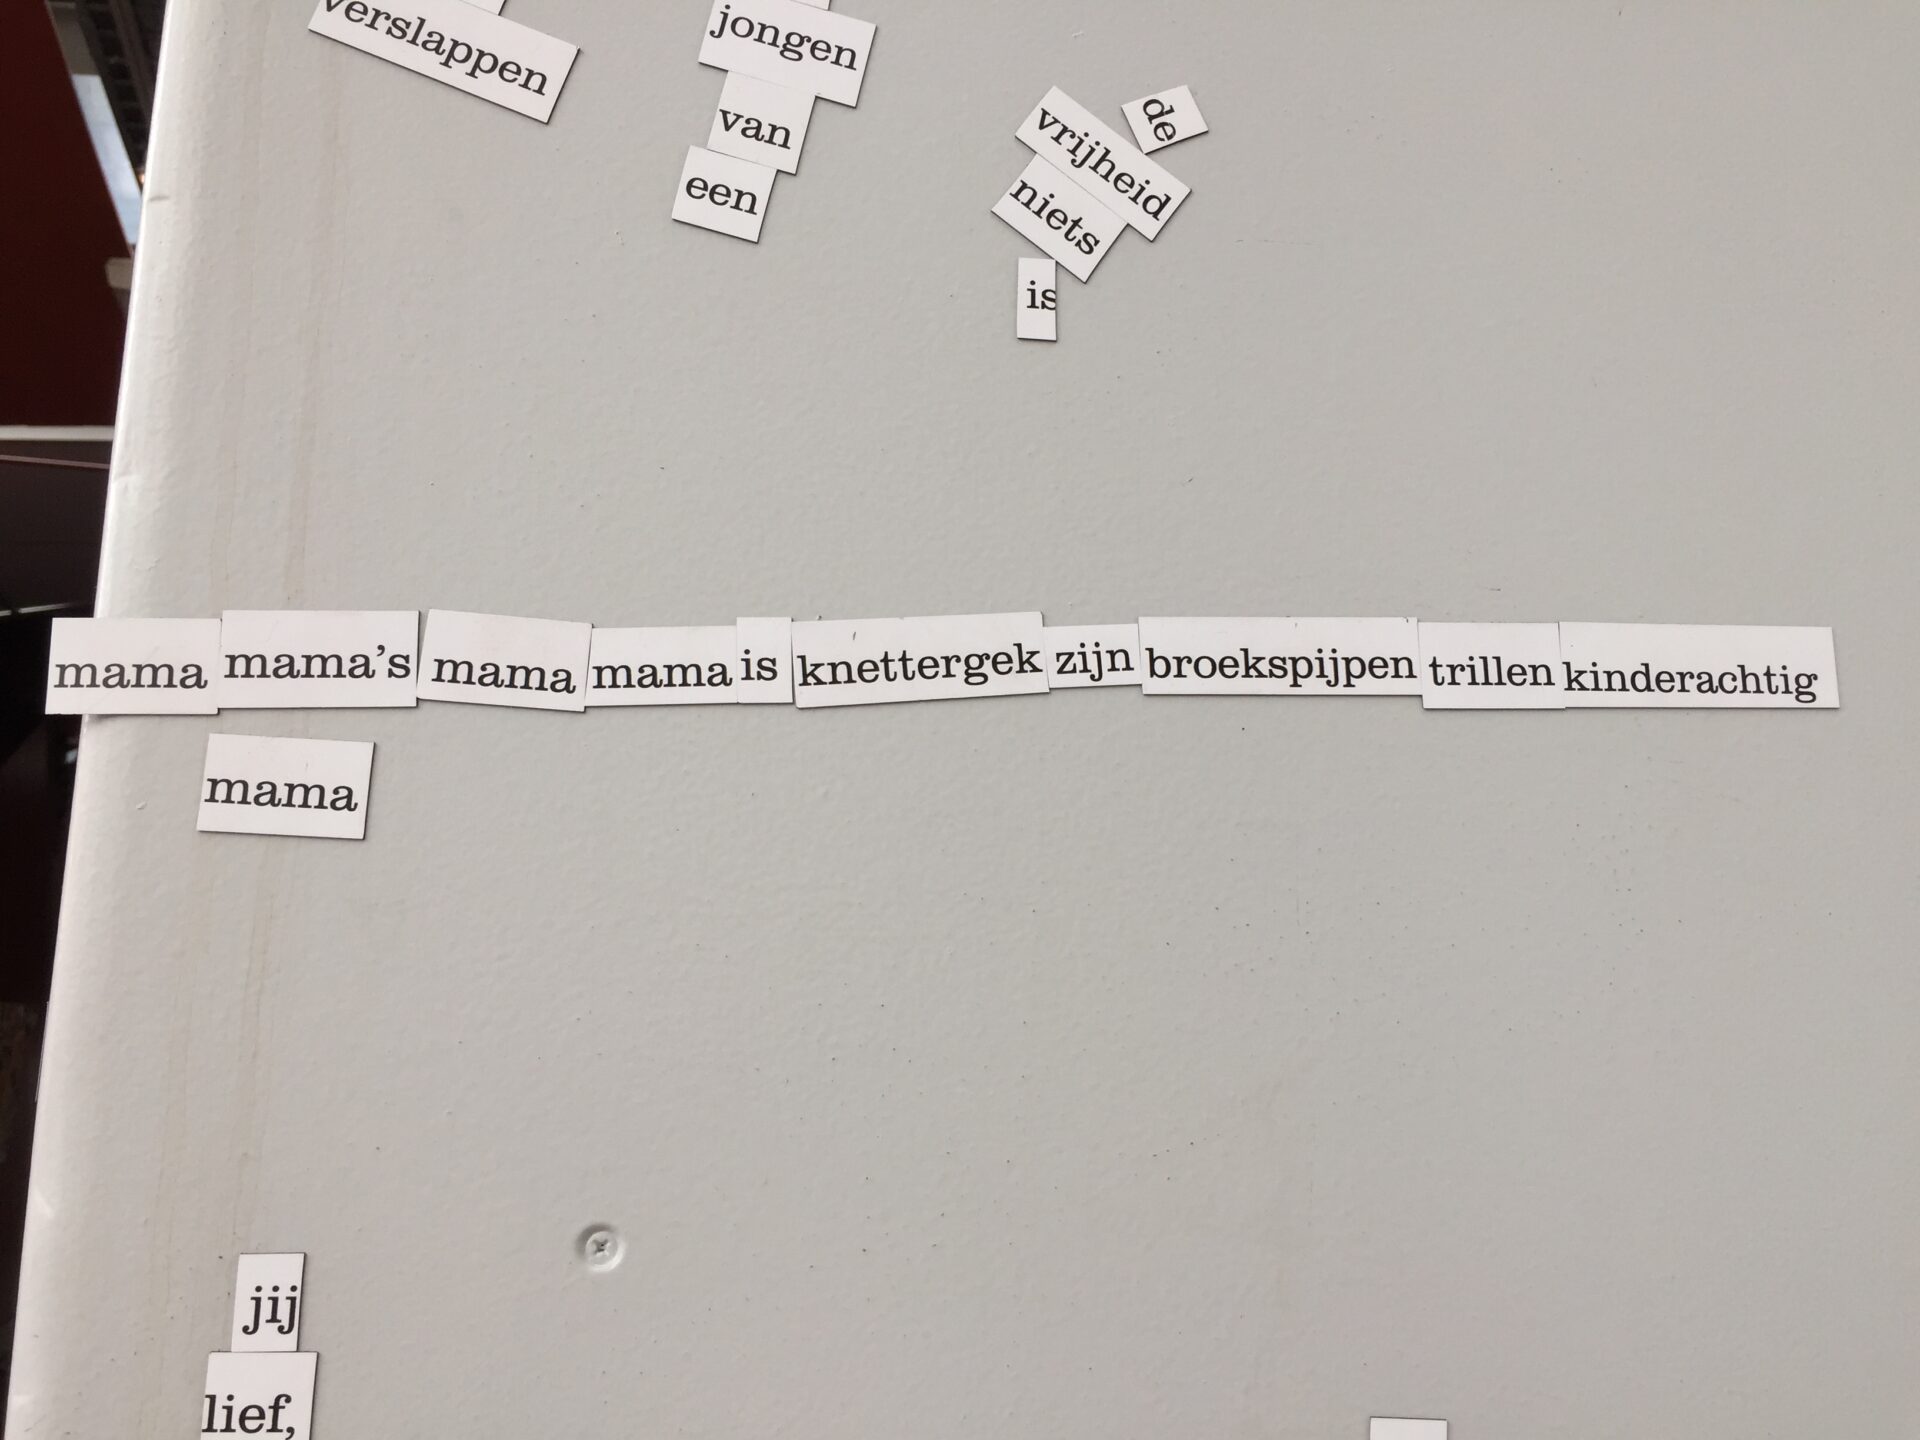 verslappen
jongen
van
een
de
vrijheid
niets
is
mama mama's mama mama is knettergek zijn broekspijpen trillen kinderachtig
mama
jij
lief,